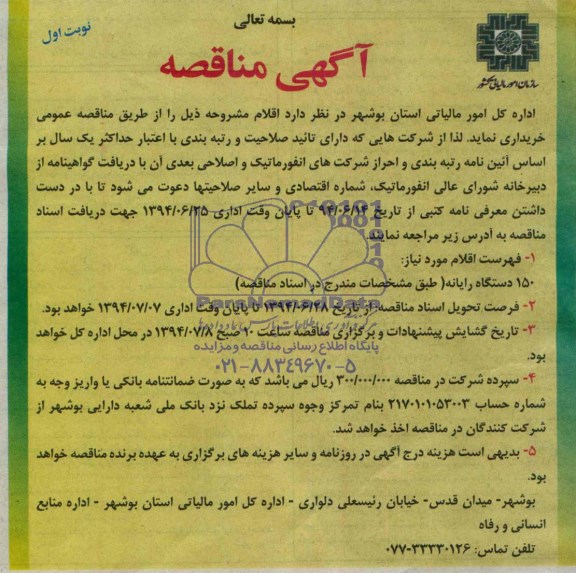 بسمه تعالی
نوبت اول
آگهی مناقصه
سازمان امور مالیاتی کشور
اداره کل امور مالیاتی استان بوشهر در نظر دارد اقلام مشروحه ذیل را از طریق مناقصه عمومی
خریداری نماید. لذا از شرکت هایی که دارای تائید صلاحیت و رتبه بندی با اعتبار حداکثر یک سال بر
اساس آئین نامه رتبه بندی و احراز شرکت های انفورماتیک و اصلاحی بعدی آن با دریافت گواهینامه از
دبیرخانه شورای عالی انفورماتیک، شماره اقتصادی و سایر صلاحیتها دعوت می شود تا با در دست
داشتن معرفی نامه کتبی از تاریخ ۹۴/۰۶/۱۴ تا پایان وقت اداری ۱۳۹۴/۰۶/۲۵ جهت دریافت اسناد
مناقصه به آدرس زیر مراجعه نمایند.
۱- فهرست اقلام مورد نیاز:
۱۵۰ دستگاه رایانه( طبق مشخصات مندرج در اسناد مناقصه)
ParsNamadData
۲- فرصت تحویل اسناد مناقصه: از تاریخ ۱۳۹۴/۰۶/۲۸ تا پایان وقت اداری ۱۳۹۴/۰۷/۰۷ خواهد بود.
۳- تاریخ گشایش پیشنهادات و برگزاری مناقصه ساعت ۱۰ صبح ۱۳۹۴/۰۷/۸ در محل اداره کل خواهد
بود.
پایگاه اطلاع رسانی مناقصه و مزایده
۰۲۱-۸۸۳۴۹۶۷۰-۵
۴- سپرده شرکت در مناقصه ۳۰۰/۰۰۰/۰۰۰ ریال می باشد که به صورت ضمانتنامه بانکی یا واریز وجه به
شماره حساب ۲۱۷۰۱۰۱۰۵۳۰۰۳ بنام تمرکز وجوه سپرده تملک نزد بانک ملی شعبه دارایی بوشهر از
شرکت کنندگان در مناقصه اخذ خواهد شد.
۵- بدیهی است هزینه درج آگهی در روزنامه و سایر هزینه های برگزاری به عهده برنده مناقصه خواهد
بود.
بوشهر- میدان قدس- خیابان رئیسعلی دلواری - اداره کل امور مالیاتی استان بوشهر - اداره منابع
انسانی و رفاه
تلفن تماس: ۳۳۳۳۰۱۲۶-۰۷۷